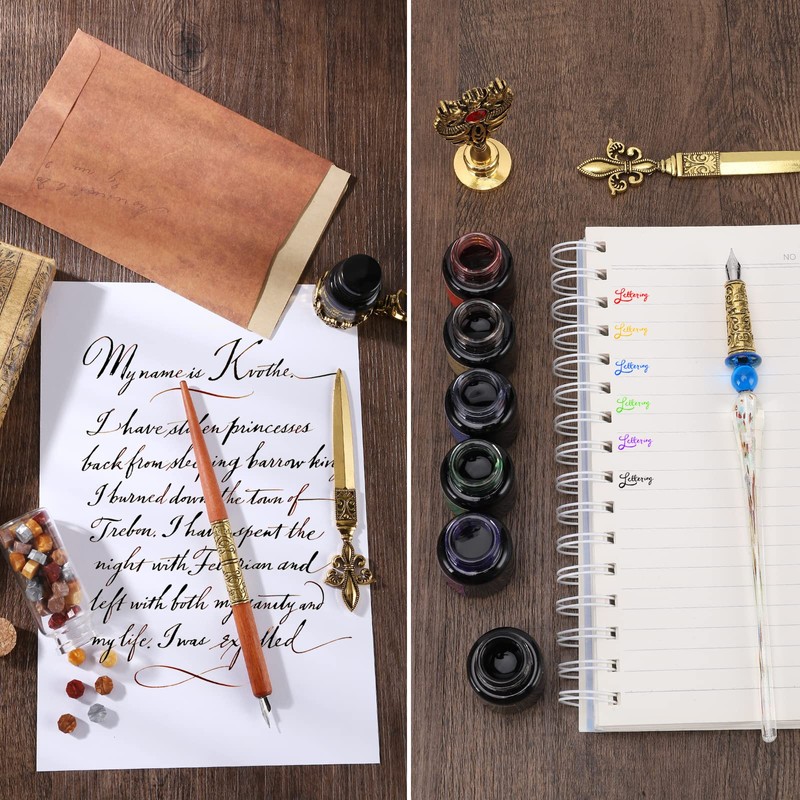 My name is Kvothe.
I have stolen princesses
back from sleeping barrow king
I burned down the town of
Trebon. I have spent the
night with Felurian and
left with both my sanity and
my life. I was expelled
NO
Lettering
Lettering
Lettering
Lettering
Lettering
Lettering